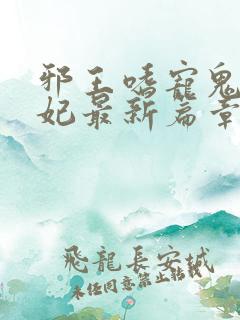 邪王嗜寵鬼
妃最新篇章
飛龍長安城
未任同意禁止轉載